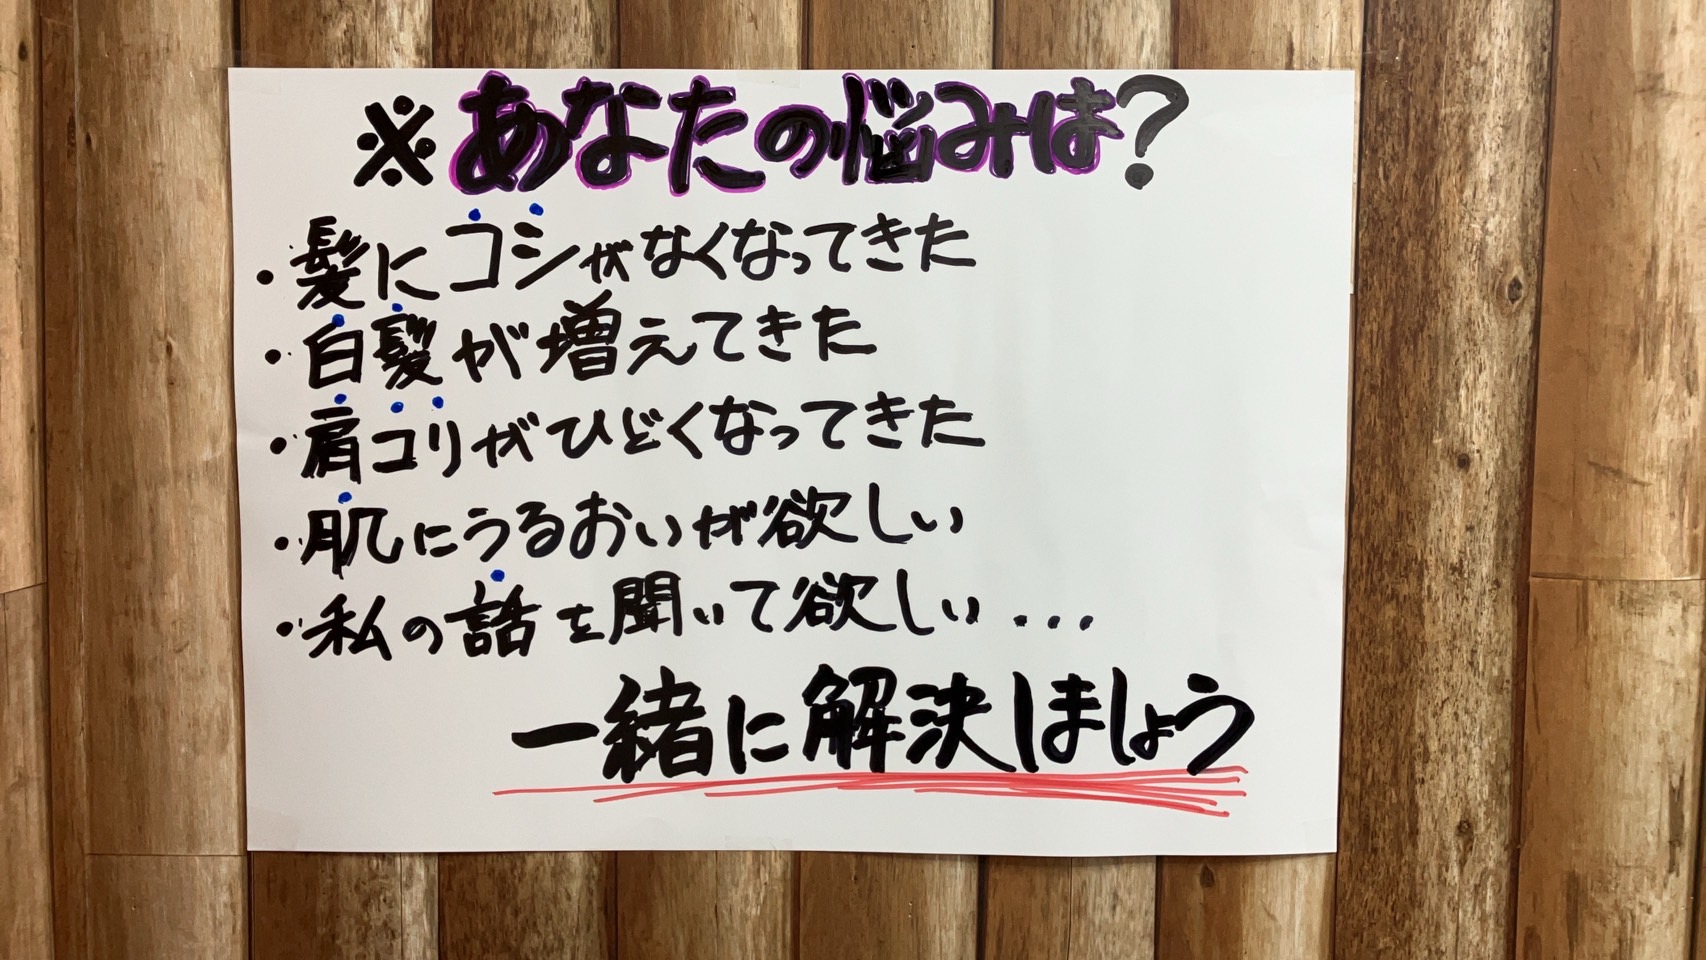 ※あなたの悩みは?
・髪にコシがなくなってきた
・白髪が増えてきた
・肩コリがひどくなってきた
・肌にうるおいが欲しい
・私の話を聞いて欲しい...
一緒に解決しましょう